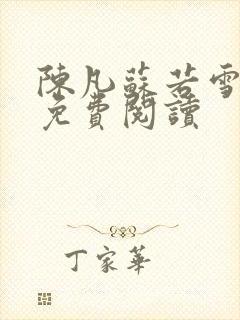 陳凡蘇若雪
免費閱讀
丁家華